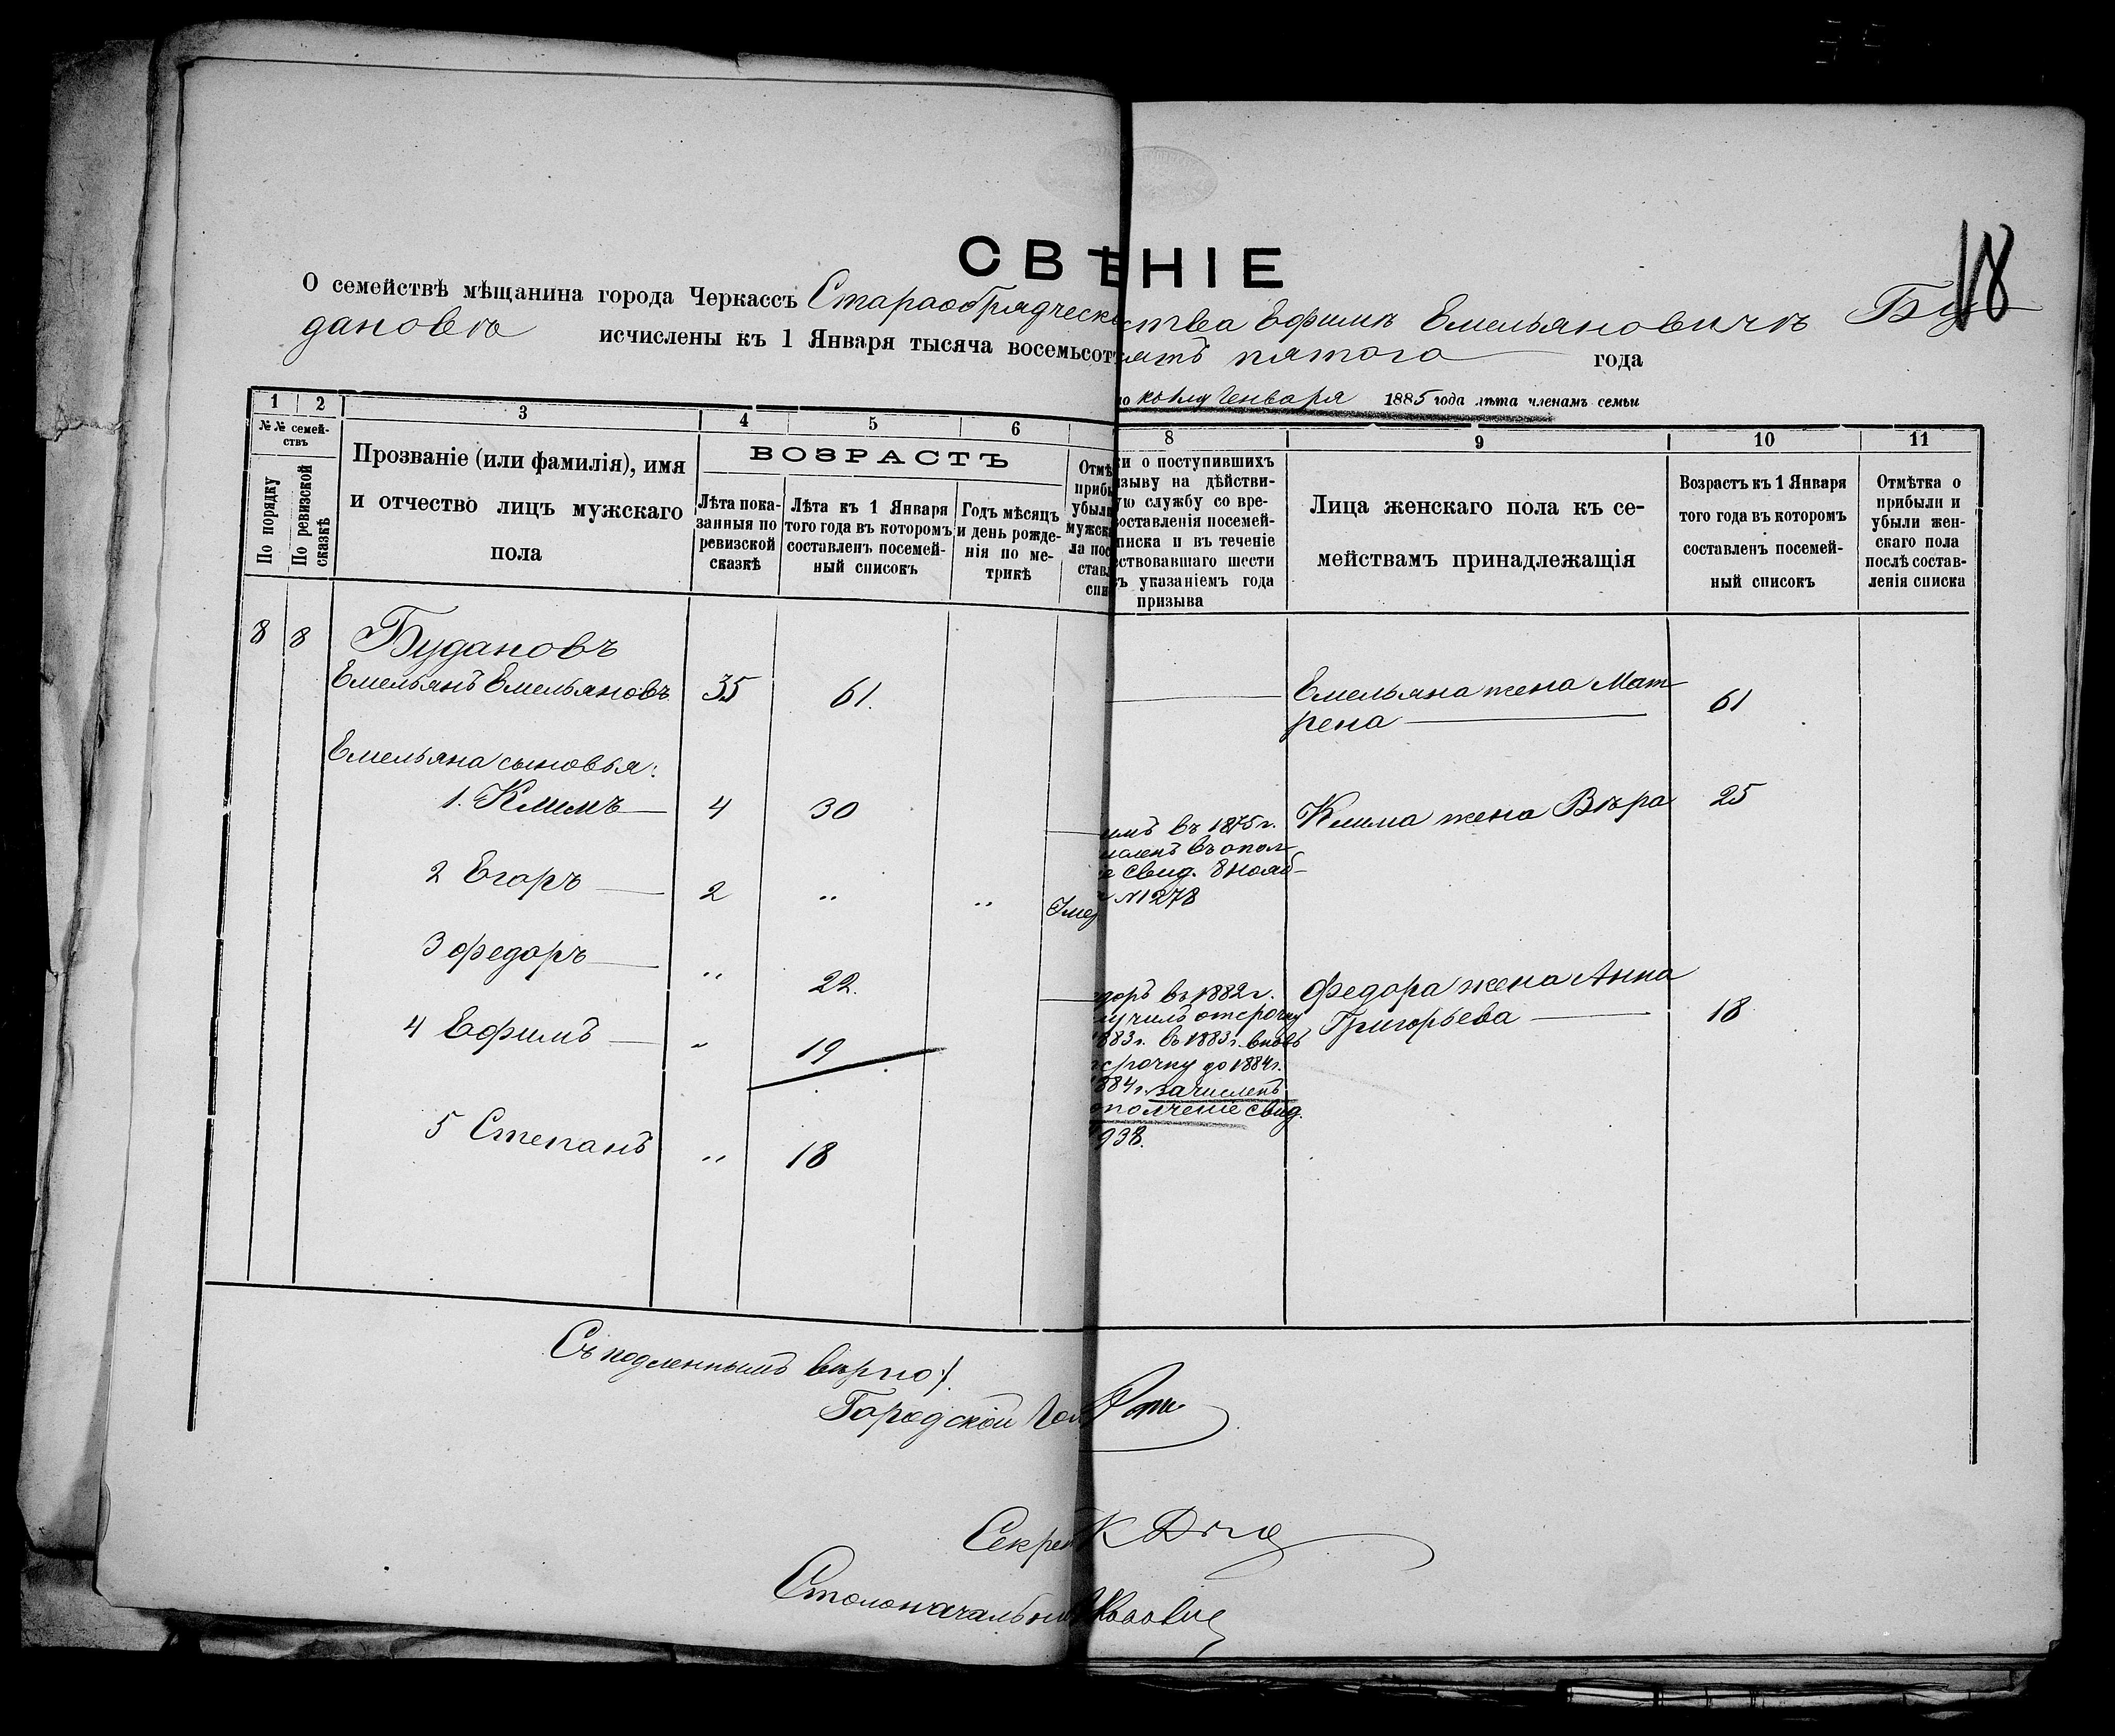 18
СВѢНІЕ
О семействѣ мѣщанина города Черкассъ Стараобрядческ ства Ефимѣ Емельяновичѣ Бу
дановѣ исчислены къ 1 Января тысяча восемьсот ятъ пятого года
ко 1му Генваря 1885 года лѣта членамъ семьи
1 2 3 4 5 6 8 9 10 11
№№ семей-
ствъ
По порядку
По ревизской
сказкѣ
Прозваніе (или фамилія), имя
и отчество лицъ мужскаго
пола
ВОЗРАСТЪ
Лѣта пока-
занныя по
ревизской
сказкѣ
Лѣта къ 1 Января
того года въ которомъ
составленъ посемей-
ный списокъ
Годъ мѣсяцъ
и день рожде-
нія по ме-
трикѣ
Отмѣ
прибы
убыли
мужск
ла пос
став
спи
и о поступившихъ
зыву на дѣйстви-
ую службу со вре-
оставленія посемей-
писка и въ теченіе
ствовавшаго шести
ъ указаніемъ года
призыва
Лица женскаго пола къ се-
мействамъ принадлежащія
Возрастъ къ 1 Января
того года въ которомъ
составленъ посемей-
ный списокъ
Отмѣтка о
прибыли и
убыли жен-
скаго пола
послѣ состав-
ленія списка
8 8 Будановъ
Емельянъ Емельяновъ 35 61. Емельяна жена Мат-
рена 61
Емельяна сыновья:
1. Климъ 4 30 Клима жена Вѣра 25
имъ въ 1875 г.
исленъ въ опол-
е Свид. 8 нояб-
№ 1278
2 Егоръ 2 " " Умер
3 Федоръ " 22. Федора жена Анна
Григорьева 18
едоръ въ 1882 г.
лучилъ отсрочку
1883 г. въ 1883 г. вновь
тсрочку до 1884 г.
1884 г. зачисленъ
ополченіе свид.
938.
4 Ефимъ " 19
5 Степанъ " 18
Съ подленнымъ вѣрно:
Городской Гол
Секрет
Столоначальни